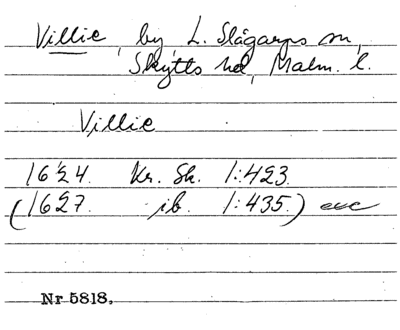 Villie, by L. Slågarps sn,
Skytts hd, Malm. l.
Villie
1624. Kr. Sk. 1:423.
(1627. ib. 1:435.) exc
Nr 5818.